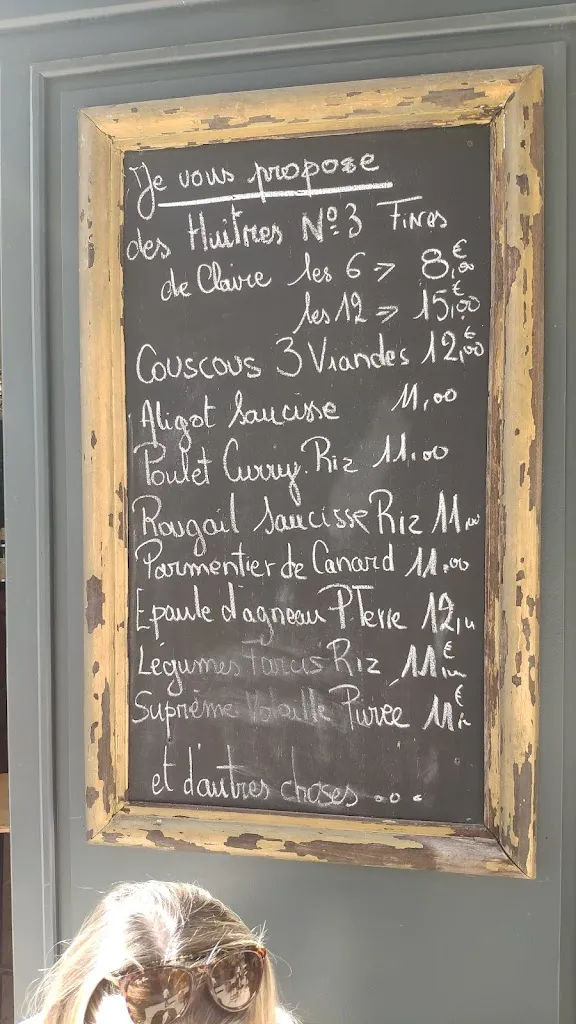 Je vous propose
des Huîtres Nº3 Fines
de Claire les 6 => 8,00€
les 12 => 15,00€
Couscous 3 Viandes 12,00€
Aligot Saucisse 11,00
Poulet Curry Riz 11.00
Rougail Saucisse Riz 11,00
Parmentier de Canard 11.00
Epaule d'agneau P.Terre 12,00
Légumes Farcis Riz 11,00€
Suprême Volaille Purée 11,00€
et d'autres choses...